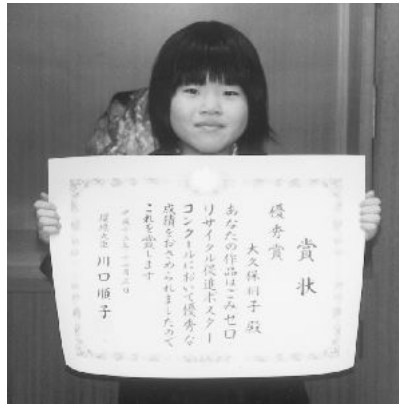 賞状
優秀賞
大久保 子殿
あなたの作品はごみゼロ
リサイクル促進ポスター
コンクールにおいて優秀な
成績をおさめられましたので
これを賞します
平成十三年十一月三日
環境大臣 川口順子